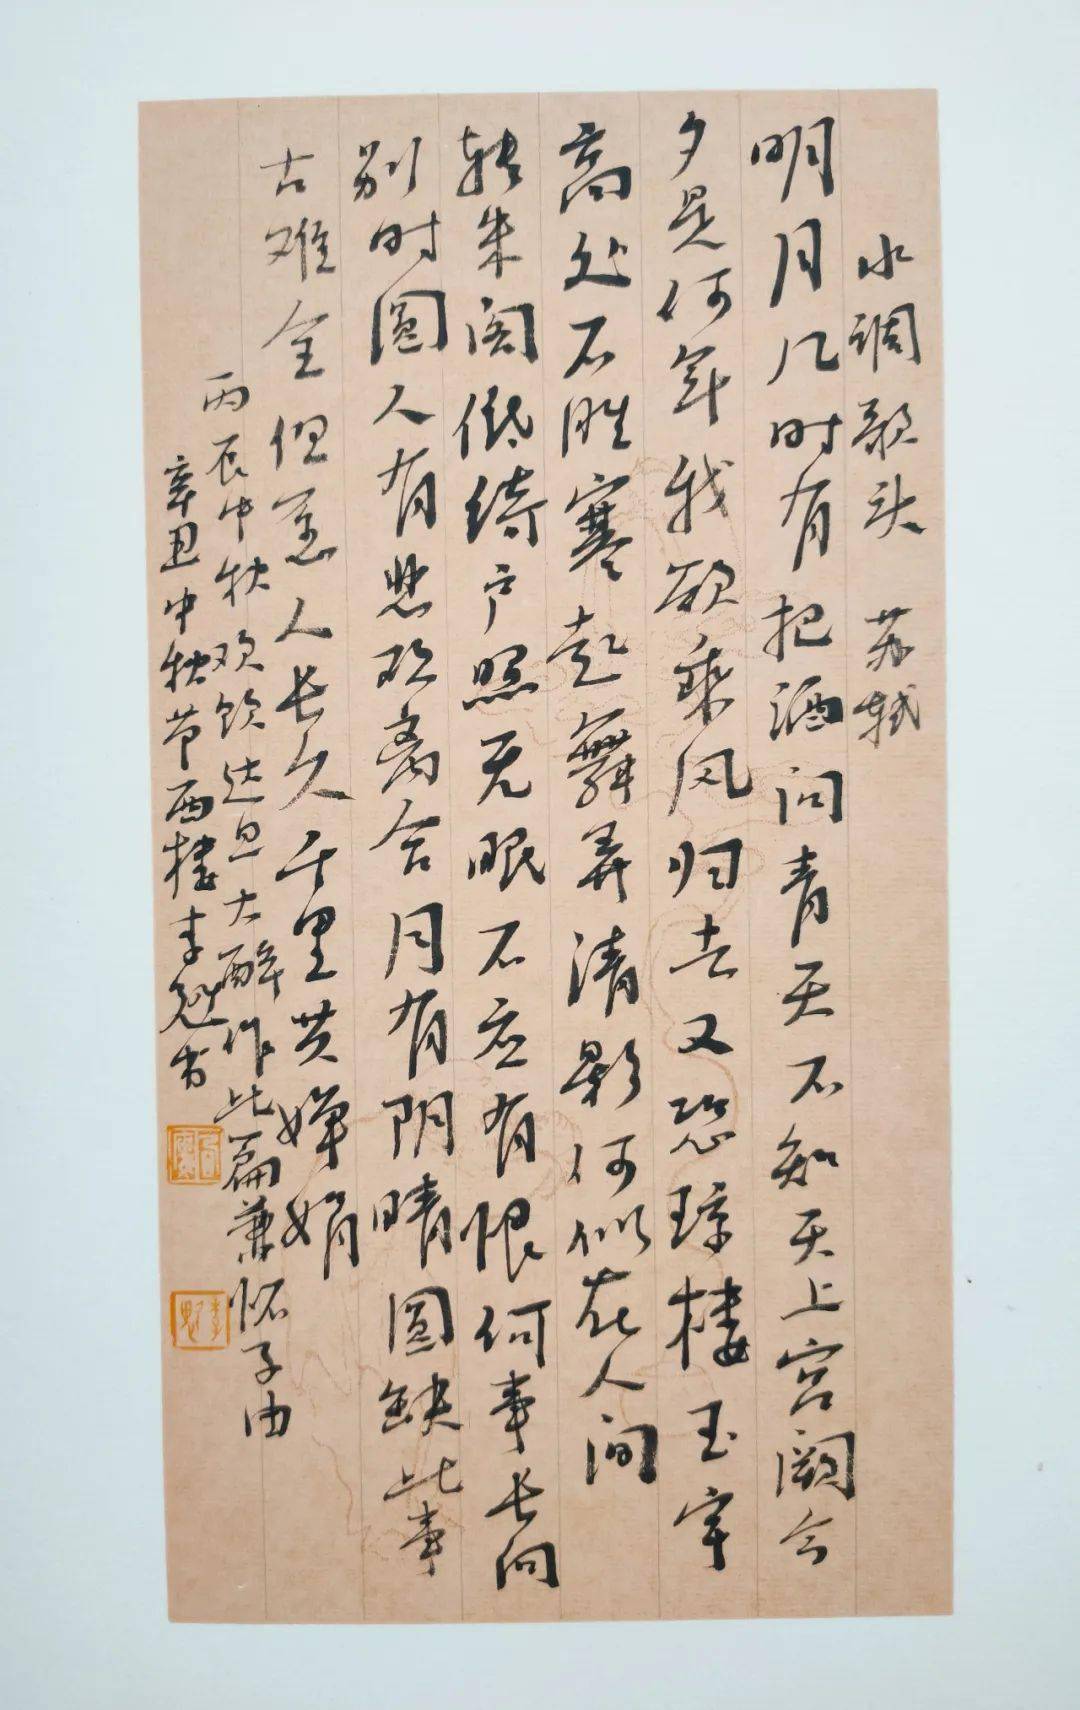 水调歌头 苏轼
明月几时有把酒问青天不知天上宫阙今
夕是何年我欲乘风归去又恐琼楼玉宇
高处不胜寒起舞弄清影何似在人间
转朱阁低绮户照无眠不应有恨何事长向
别时圆人有悲欢离合月有阴晴圆缺此事
古难全但愿人长久千里共婵娟
丙辰中秋欢饮达旦大醉作此篇兼怀子由
辛丑中秋节西楼李书